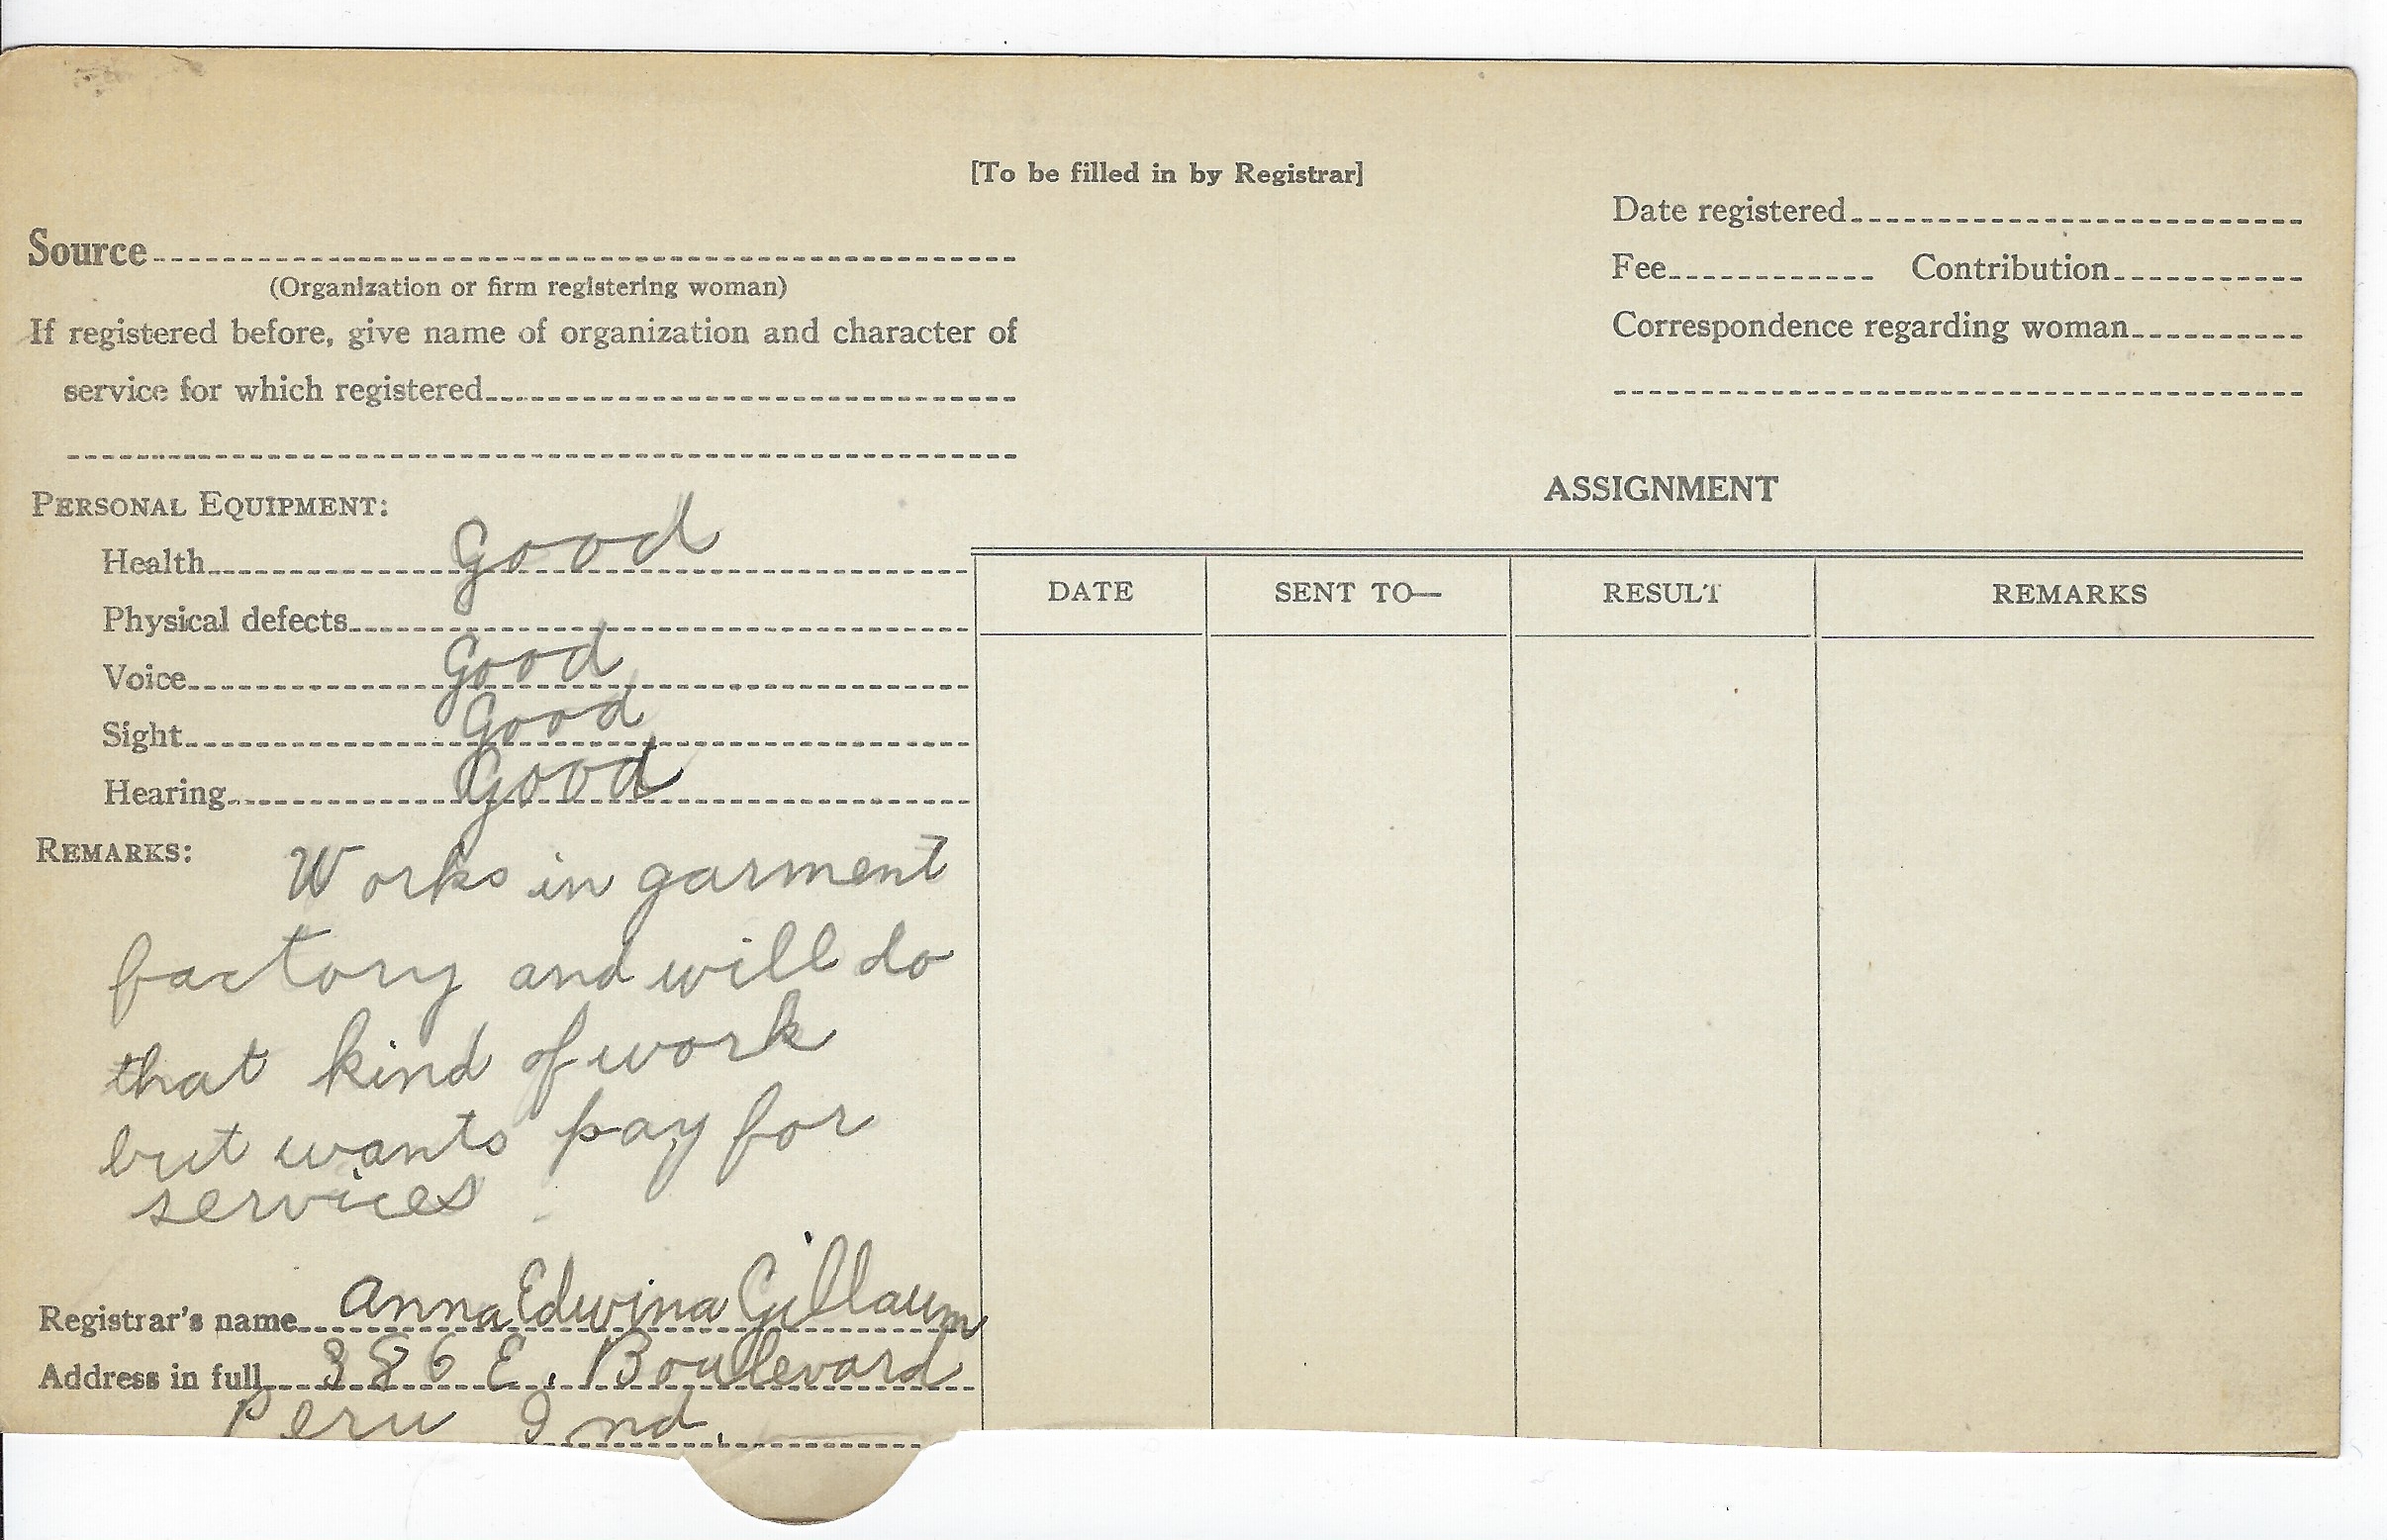 [To be filled in by Registrar]
Date registered
Source
Fee Contribution
(Organization or firm registering woman)
Correspondence regarding woman
If registered before, give name of organization and character of
service for which registered
ASSIGNMENT
PERSONAL EQUIPMENT:
Health Good
Physical defects
Voice Good
Sight Good
Hearing Good
DATE SENT TO— RESULT REMARKS
REMARKS: Works in garment
factory and will do
that kind of work
but wants pay for
services
Registrar's name Anna Edwina Gillaum
Address in full 386 E. Boulevard
Peru Ind.